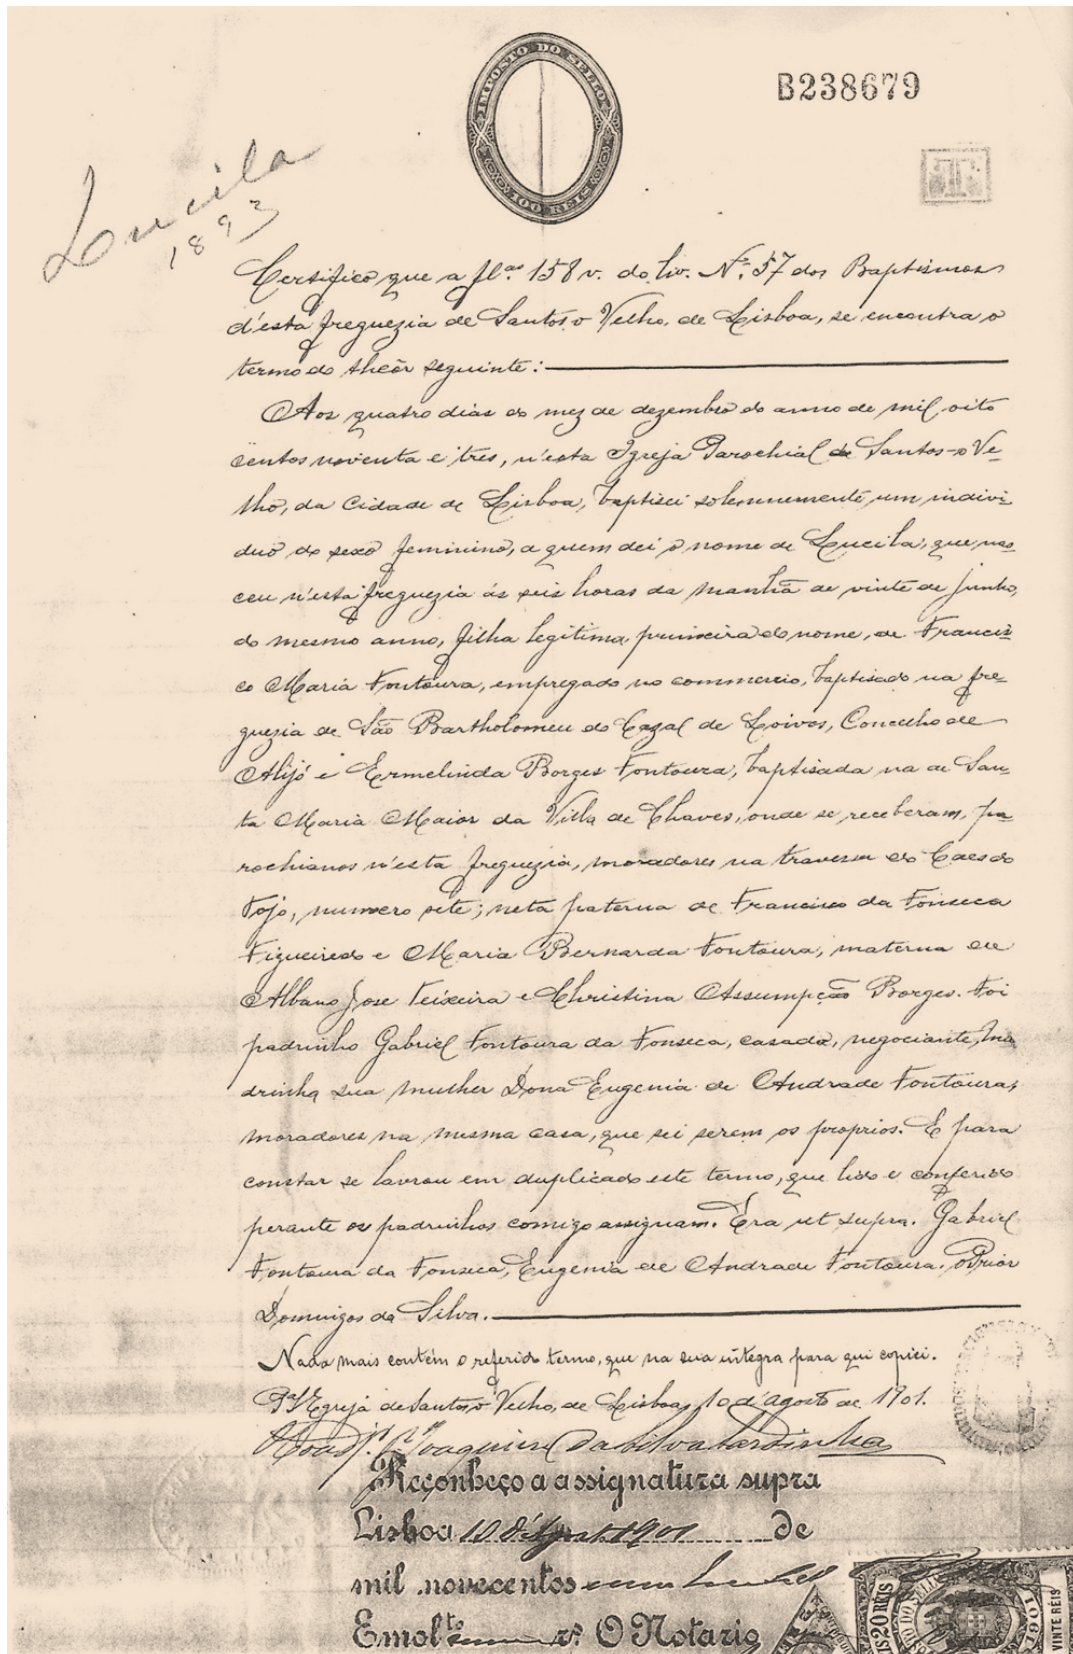 IMPOSTO DO SELLO
100 REIS
B238679
T
Lucila
1893
Certifico que a fl.as 158 v. do liv. Nº 57 dos Baptismos
d'esta freguezia de Santos o Velho, de Lisboa, se encontra o
termo do theôr seguinte:
Aos quatro dias do mez de dezembro do anno de mil oito
centos noventa e tres, n'esta Igreja Parochial de Santos-o-Ve-
lho, da Cidade de Lisboa, baptisei solemnemente um indivi-
duo do sexo feminino, a quem dei o nome de Lucila, que nas-
ceu n'esta freguezia ás seis horas da manhã de vinte de junho,
do mesmo anno, filha legitima, primeira do nome, de Francis-
co Maria Fontoura, empregado no commercio, baptisado na fre-
guezia de São Bartholomeu do Cazal de Loivos, Concelho de
Alijó e Ermelinda Borges Fontoura, baptisada na de San-
ta Maria Maior da Villa de Chaves, onde se receberam, pa-
rochianos n'esta freguezia, moradores na travessa do Caes do
Tojo, numero sete; neta paterna de Francisco da Fonseca
Figueiredo e Maria Bernarda Fontoura, materna de
Albano Jose Teixeira e Christina Assumpção Borges. Foi
padrinho Gabriel Fontoura da Fonseca, casado, negociante, ma-
drinha sua mulher Dona Eugenia de Andrade Fontoura,
moradores na mesma casa, que sei serem os proprios. E para
constar se lavrou em duplicado este termo, que lido e conferido
perante os padrinhos comigo assignam. Era ut supra. Gabriel
Fontoura da Fonseca, Eugenia de Andrade Fontoura. O Prior
Domingos da Silva.
Nada mais contém o referido termo, que na sua integra para qui copiei.
Egreja de Santos o Velho, de Lisboa, 10 d'agosto de 1901.
Joaquim da Silva Sardinha
Reconheço a assignatura supra
Lisboa 10 d'Agosto 1901 de
mil novecentos e um
Emol.to rs. O Notario
20 RÉIS
VINTE RÉIS